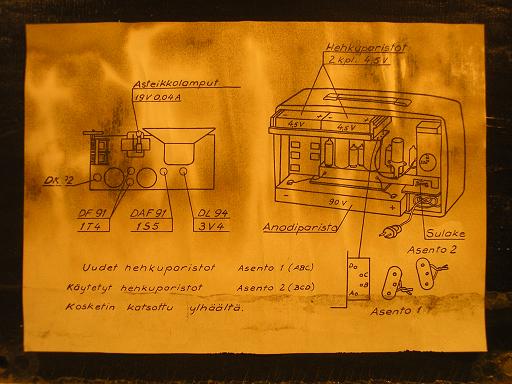 Hehkuparistot
2 kpl. 4,5 V
Asteikkolamput
19V 0.04A
4,5V
4,5V
DK 92
DF 91
1T4
DAF 91
1S5
DL 94
3V4
- 90 V +
Anodiparisto
Sulake
Asento 2
Uudet hehkuparistot Asento 1 (ABC)
Käytetyt hehkuparistot Asento 2 (BCD)
Kosketin katsottu ylhäältä.
D
C
B
A
Asento 1